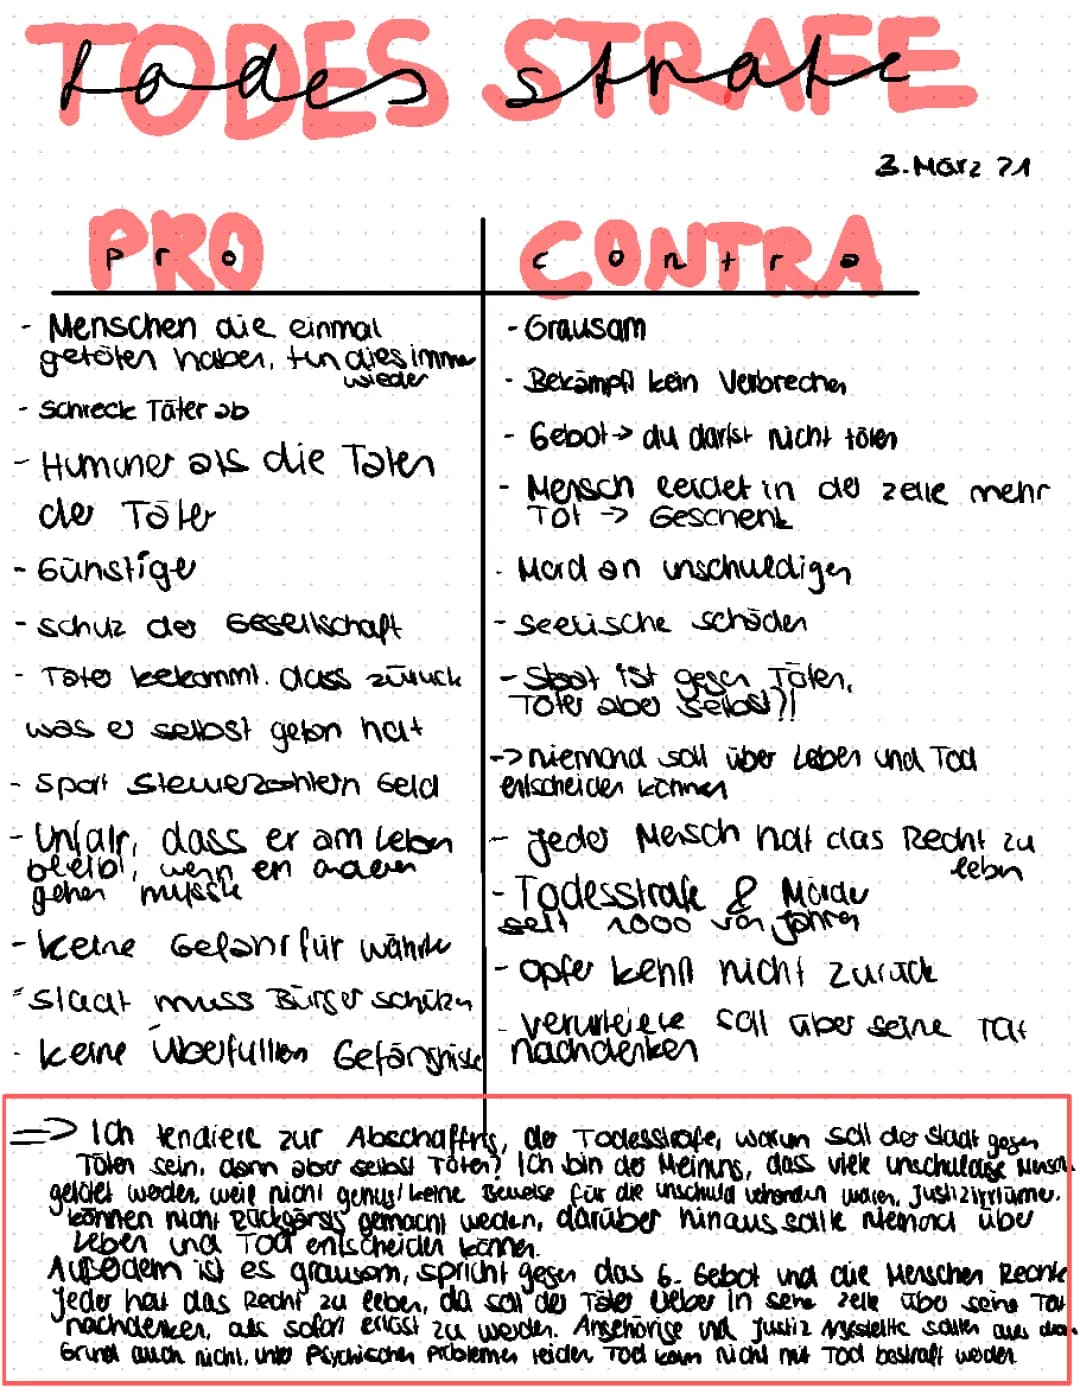 TODES STRAFE
Todes strafe
3. März 21
PRO
pro
- Menschen die einmal
getöten haben, tun dies imme
wieder
- Schreck Täter ab
- Humuner als die Taten
der Täter
- Günstige
- schuz der Gesellschaft
- Täter bekommt. dass zurück
was er selbst getan hat
- Spart Steuerzahlern Geld
- Unfair, dass er am Leben
bleibt, wenn en anderer
gehen musste
- keine Gefahr für
- Staat muss Bürger schützn
- keine Überfüllten Gefängnisse
CONTRA
contra
- Grausam
- Bekämpft kein Verbrechen
- Gebot -> du darfst nicht töten
- Mensch leidet in der zelle mehr
Tot -> Geschenk
- Mord an unschuldigen
- seelische schäden
- Staat ist gegen Töten,
Töter aber selbst?!
-> niemand soll über Leben und Tod
entscheiden können
- jeder Mensch hat das Recht zu
lebn
- Todesstrafe & Mörder
seit 1000 von Jahren
- opfer kehrt nicht zurück
- soll über seine Tat
nachdenken
=> Ich tendiere zur Abschaffung, der Todesstrafe, warum soll der Staat gegen
Töten sein, dann aber selbst Töten? Ich bin der Meinung, dass viele unschuldige Mensch.
getötet werden, weil nicht genug/keine Beweise für die unschuld vorhanden waren, Justizirrtüme.
können nicht Rückgängig gemacht weden, darüber hinaus sollte Niemand über
Leben und Tod entscheiden können.
Außedem ist es grausam, spricht gegen das 6. Gebot und die Menschen Rechte
Jeder hat das Recht zu leben, da soll der Täter lieber in seine zelle über seine Tat
nachdenken, als sofort erlöst zu werden. Angehörige und Justiz Angestellte sollten aus
Grund auch nicht, unter Psychischen Problemen leiden. Tod kann nicht mit Tod bestraft werden